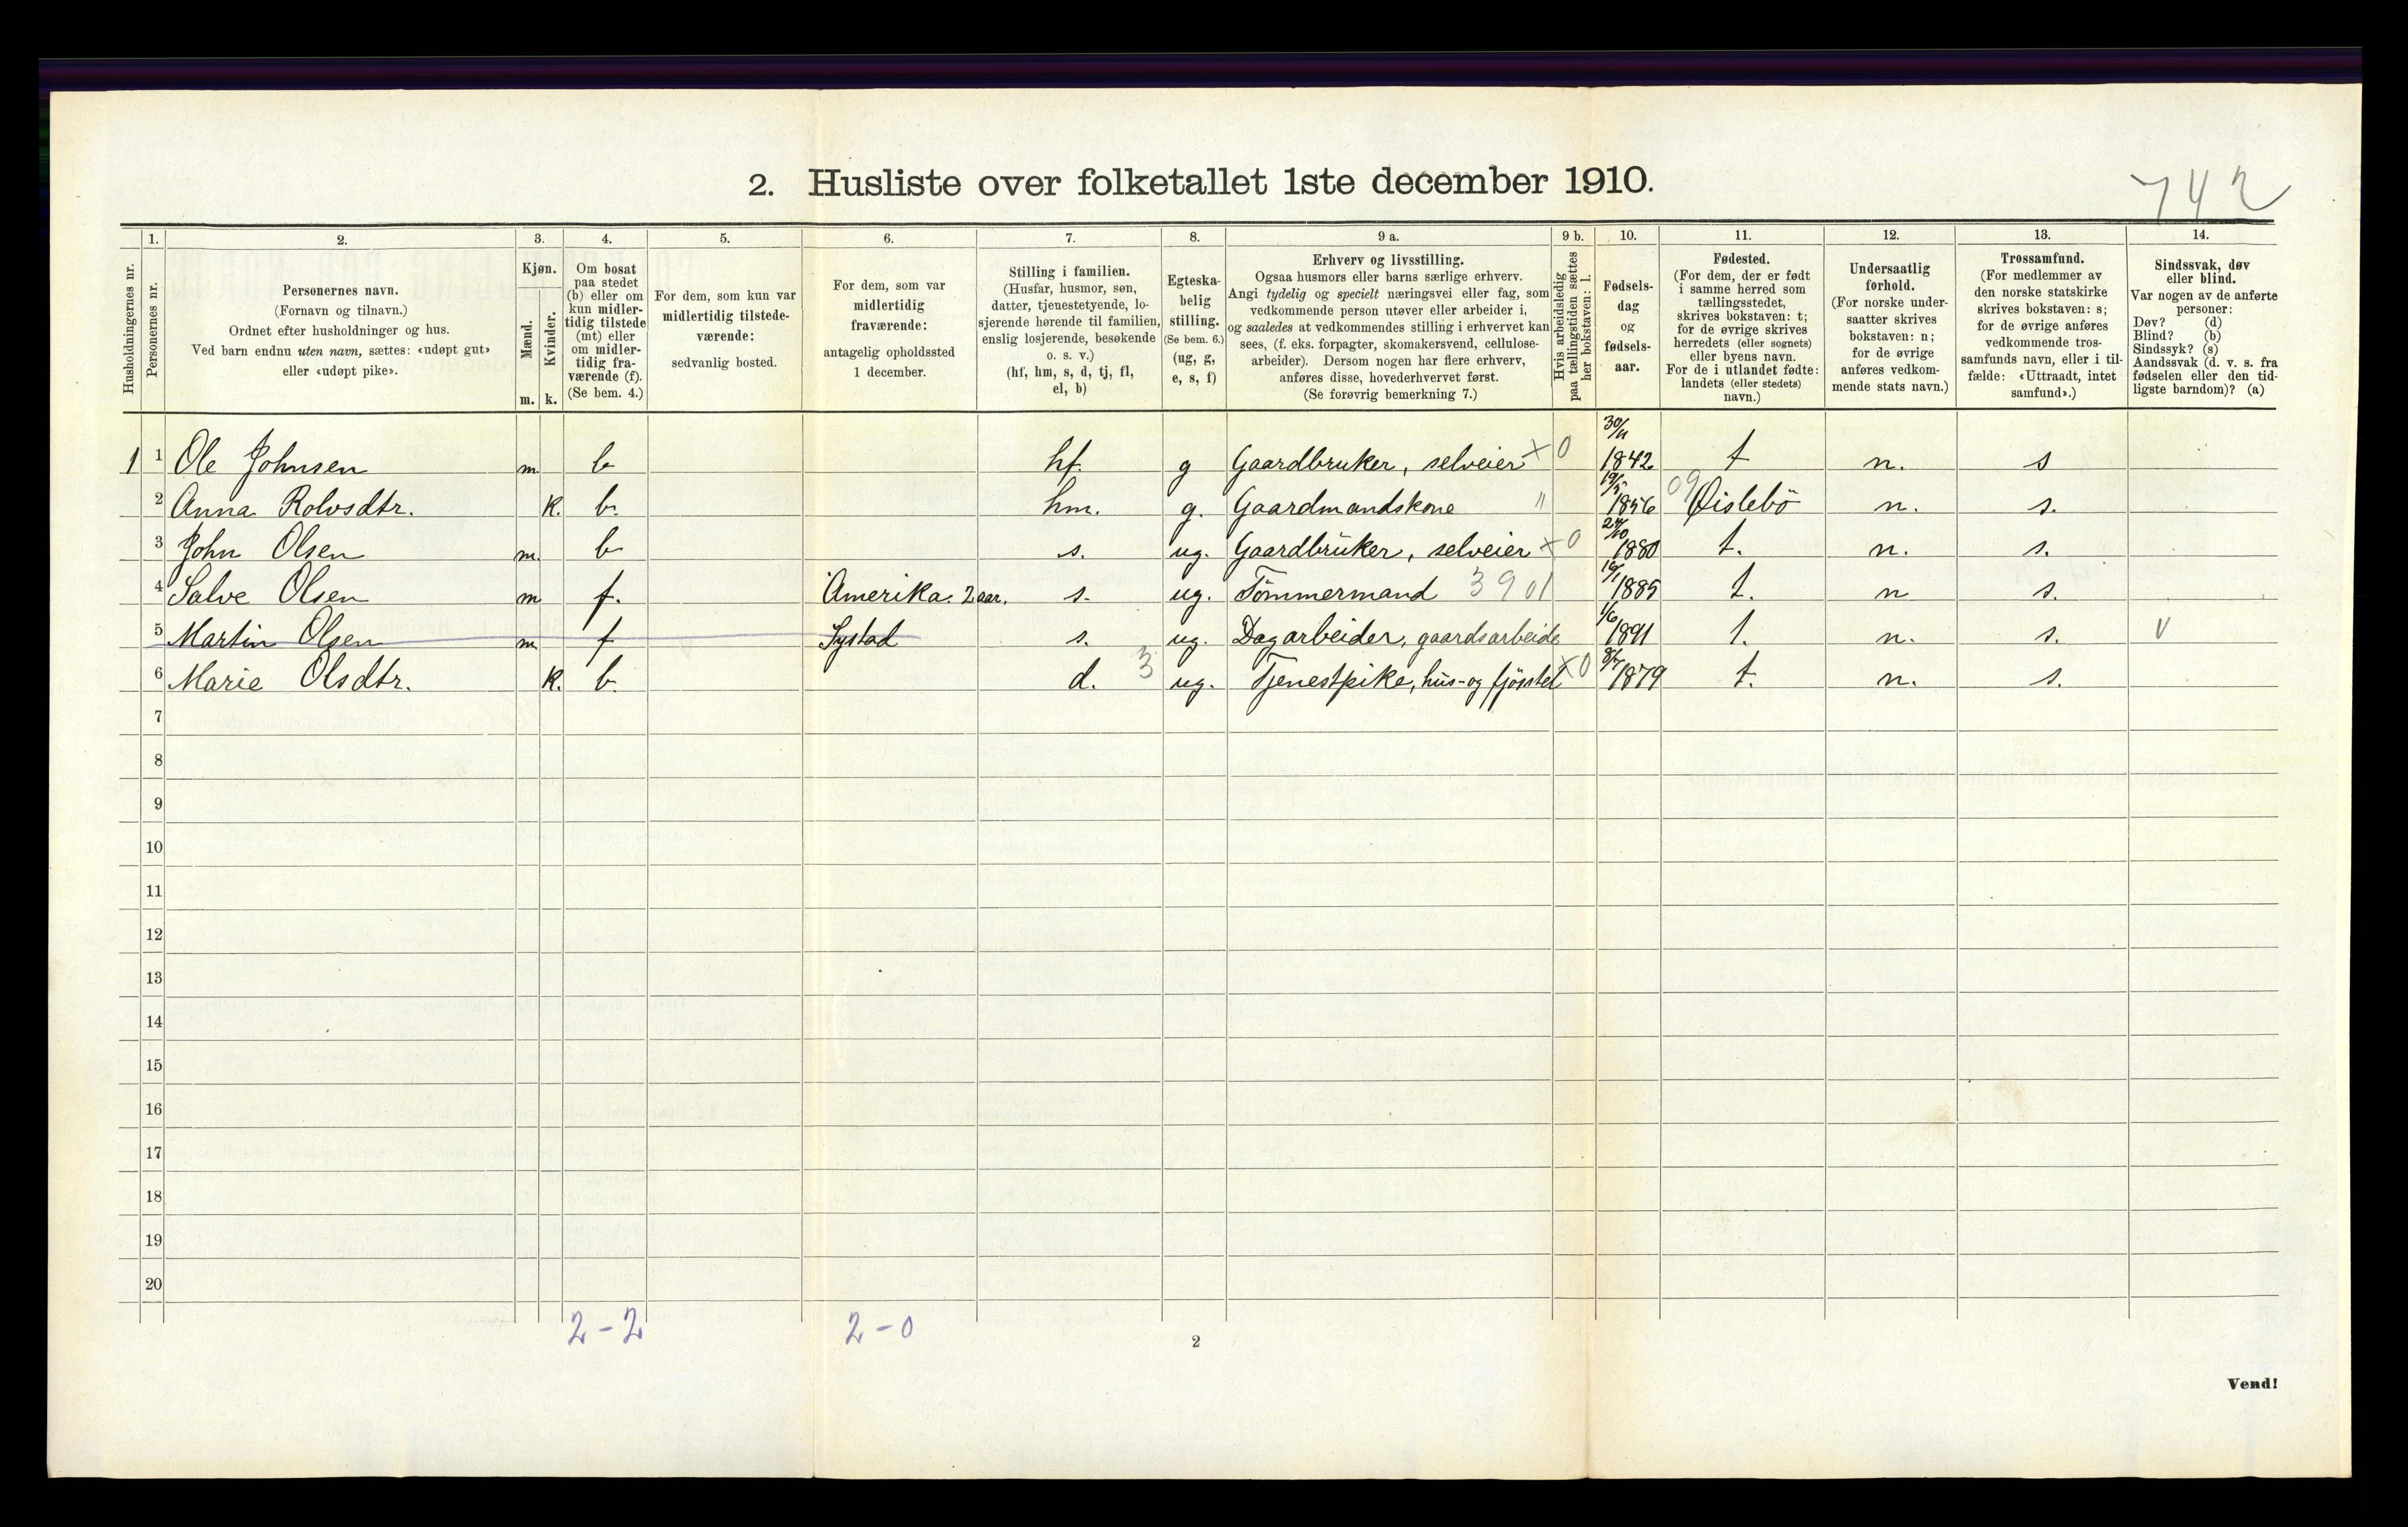 2. Husliste over folketallet 1ste december 1910.
742
Husholdningernes nr.
1. Personernes nr.
2. Personernes navn. (Fornavn og tilnavn.) Ordnet efter husholdninger og hus. Ved barn endnu uten navn, sættes: «udøpt gut» eller «udøpt pike».
3. Kjøn. Mænd. m. Kvinder. k.
4. Om bosat paa stedet (b) eller om kun midlertidig tilstede (mt) eller om midlertidig fraværende (f). (Se bem. 4.)
5. For dem, som kun var midlertidig tilstedeværende: sedvanlig bosted.
6. For dem, som var midlertidig fraværende: antagelig opholdssted 1 december.
7. Stilling i familien. (Husfar, husmor, søn, datter, tjenestetyende, losjerende hørende til familien, enslig losjerende, besøkende o. s. v.) (hf, hm, s, d, tj, fl, el, b)
8. Egteskabelig stilling. (Se bem. 6.) (ug, g, e, s, f)
9 a. Erhverv og livsstilling. Ogsaa husmors eller barns særlige erhverv. Angi tydelig og specielt næringsvei eller fag, som vedkommende person utøver eller arbeider i, og saaledes at vedkommendes stilling i erhvervet kan sees, (f. eks. forpagter, skomakersvend, cellulosearbeider). Dersom nogen har flere erhverv, anføres disse, hovederhvervet først. (Se forøvrig bemerkning 7.)
9 b. Hvis arbeidsledig paa tællingstiden sættes her bokstaven: l.
10. Fødselsdag og fødselsaar.
11. Fødested. (For dem, der er født i samme herred som tællingsstedet, skrives bokstaven: t; for de øvrige skrives herredets (eller sognets) eller byens navn. For de i utlandet fødte: landets (eller stedets) navn.)
12. Undersaatlig forhold. (For norske undersaatter skrives bokstaven: n; for de øvrige anføres vedkommende stats navn.)
13. Trossamfund. (For medlemmer av den norske statskirke skrives bokstaven: s; for de øvrige anføres vedkommende trossamfunds navn, eller i tilfælde: «Uttraadt, intet samfund».)
14. Sindssvak, døv eller blind. Var nogen av de anførte personer: Døv? (d) Blind? (b) Sindssyk? (s) Aandssvak (d. v. s. fra fødselen eller den tidligste barndom)? (a)
1 1 Ole Johnsen m. b hf. g Gaardbruker, selveier x 0 30/11 1842 t n. s
2 Anna Rolvsdtr. k. b. hm. g. Gaardmandskone " 19/5 1856 09 Øislebö n. s.
3 John Olsen m. b s. ug. Gaardbruker, selveier x 0 24/10 1880 t. n. s.
4 Salve Olsen m f. Amerika. 2 aar. s. ug. Tömmermand 3901 1885 t. n s.
5 Martin Olsen m. f Systad s. ug. Dagarbeider, gaardsarbeide 1/6 1891 t. n. s. v
6 Marie Olsdtr. k. b. d. 3 ug. Tjenestpike, hus- og fjösstel x 0 1879 t. n. s.
7
8
9
10
11
12
13
14
15
16
17
18
19
20
2-2 2-0
2
Vend!